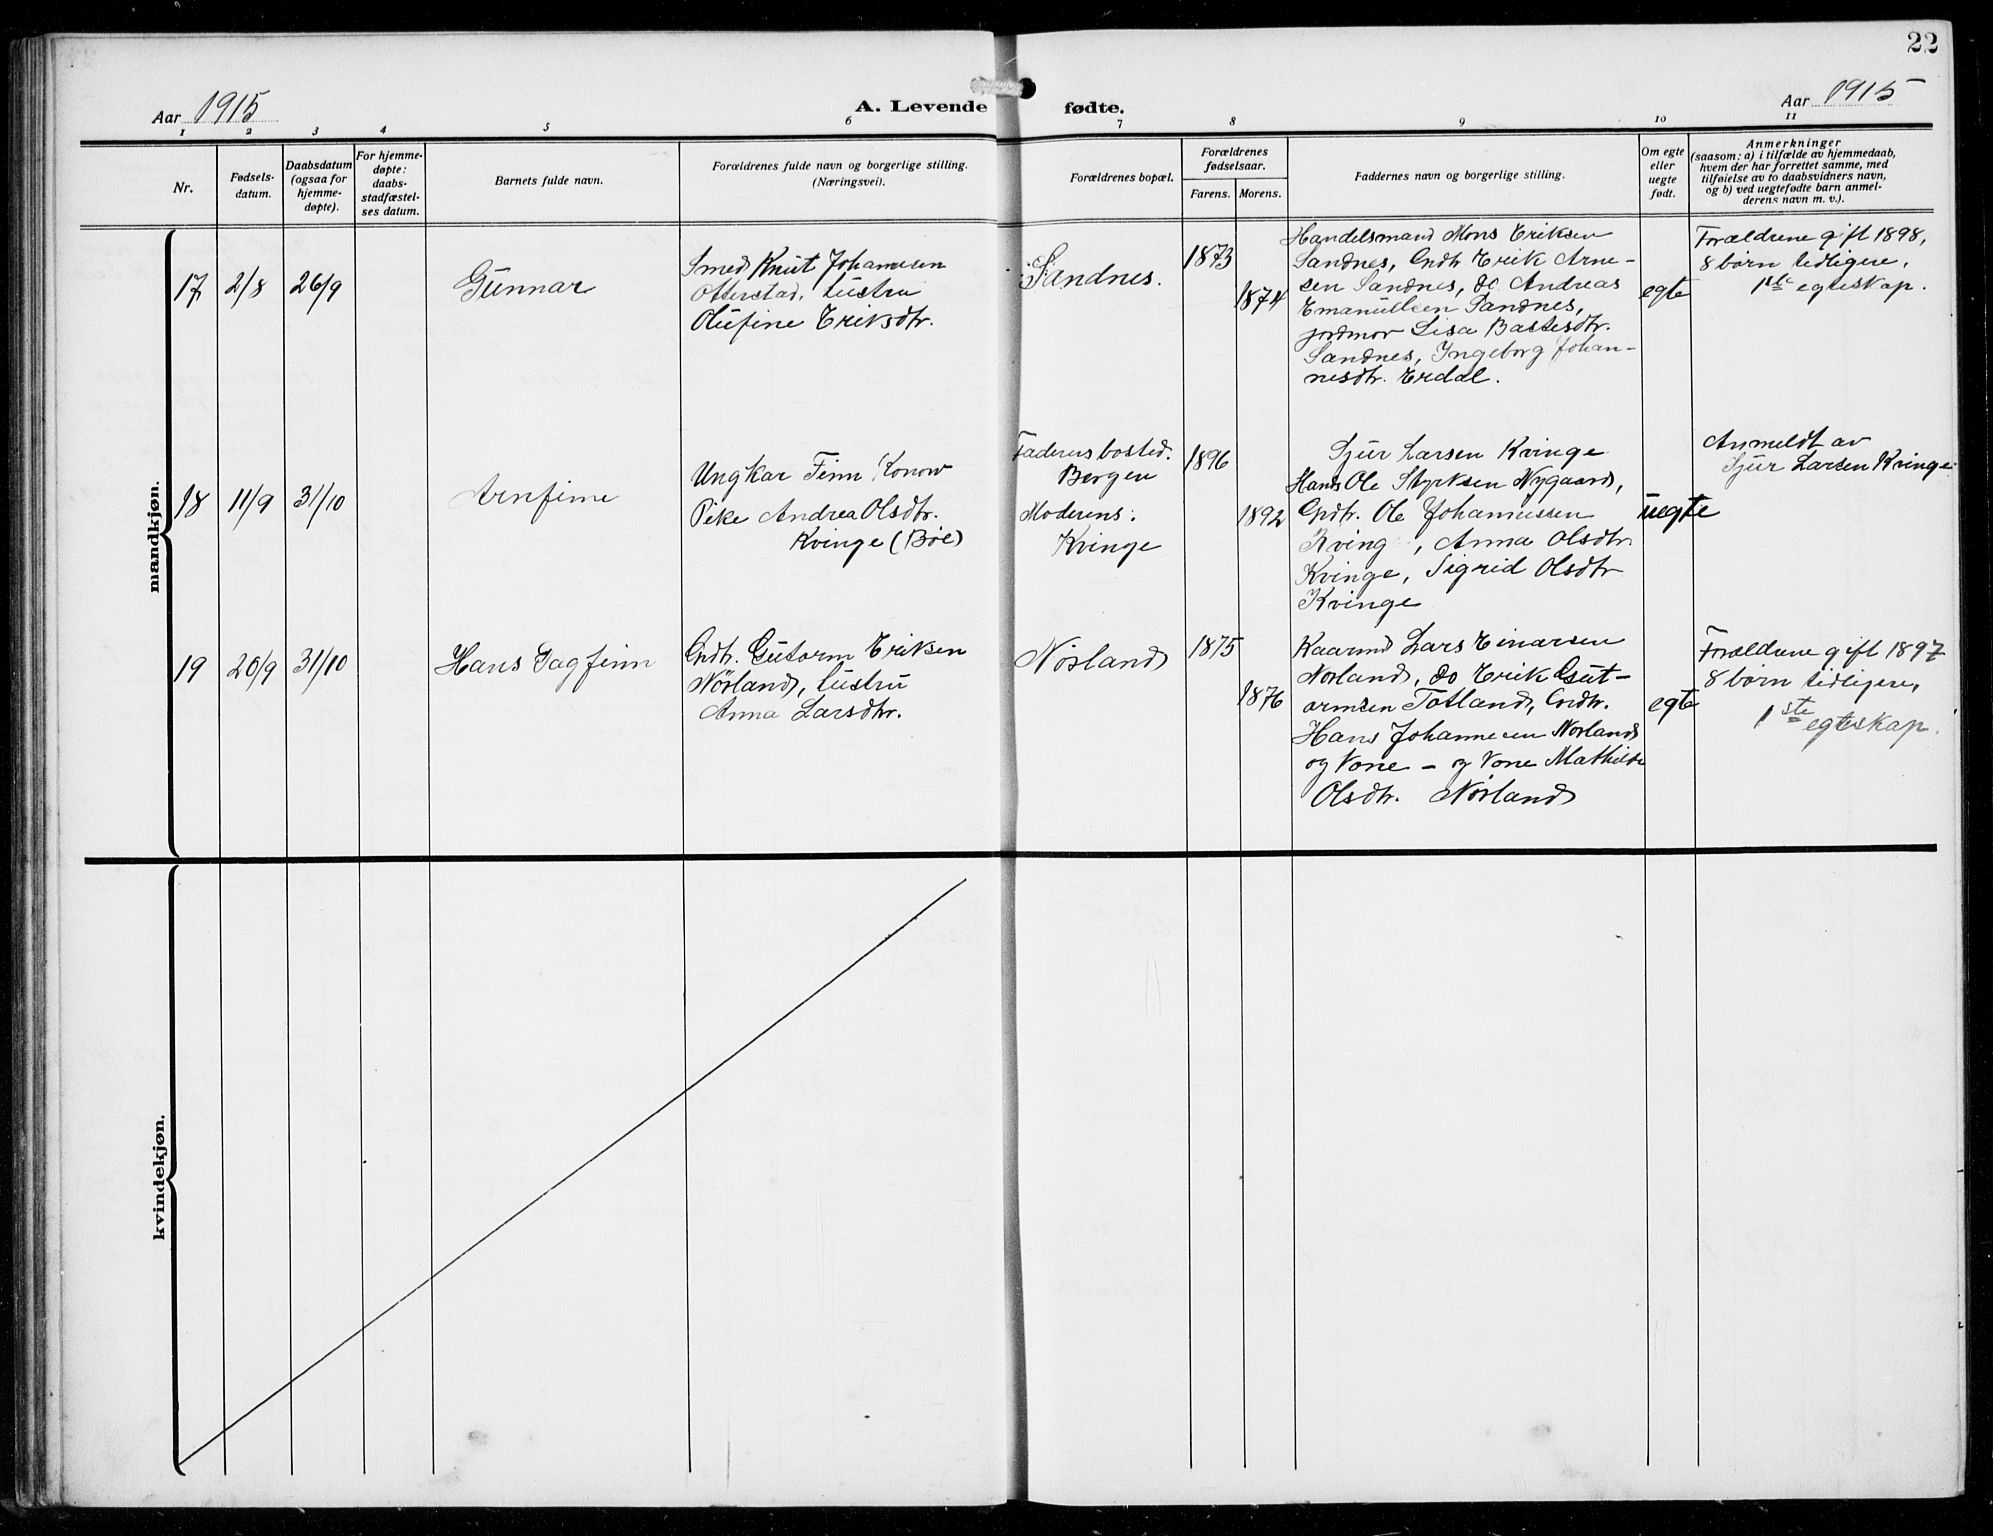 22
Aar 1915
A. Levende fødte.
Aar 1915
1 2 3 4 5 6 7 8 9 10 11
Nr.
Fødsels-
datum.
Daabsdatum
(ogsaa for
hjemme-
døpte).
For hjemme-
døpte:
daabs-
stadfæstel-
ses datum.
Barnets fulde navn.
Forældrenes fulde navn og borgerlige stilling.
(Næringsvei).
Forældrenes bopæl.
Forældrenes
fødselsaar.
Farens. Morens.
Faddernes navn og borgerlige stilling.
Om egte
eller
uegte
født.
Anmerkninger
(saasom: a) i tilfælde av hjemmedaab,
hvem der har forrettet samme, med
tilføielse av to daabsvidners navn,
og b) ved uegtefødte barn anmel-
derens navn m. v.).
mandkjøn.
17 2/8 26/9
Gunnar
Smed Knut Johannesen
Otterstad, hustru
Olufine Eriksdtr.
Sandnes.
1873
1874
Handelsmand Mons Eriksen
Sandnes, Gndtr. Erik Arne-
sen Sandnes, do Andreas
Emanuelsen Sandnes,
jordmor Lisa Bastesdtr.
Sandnes, Ingeborg Johan-
nesdtr. Erdal.
egte
Forældrene gift 1898,
8 børn tidligere.
1ste egteskap.
18 11/9 31/10
Arnfinn
Ungkar Finn Konow
Pike Andrea Olsdtr.
Kvinge (Böe)
Faderens bosted.
Bergen
Moderens:
Kvinge
1896
1892
Sjur Larsen Kvinge
Hans Ole Styrksen Nygaard,
Gndtr. Ole Johannessen
Kving , Anna Olsdtr.
Kvinge, Sigrid Olsdtr
Kvinge
uegte
Anmeldt av
Sjur Larsen Kvinge.
19 20/9 31/10
Hans Dagfinn
Gndtr. Gutorm Eriksen
Nörland, hustru
Anna Larsdtr.
Nörland
1875
1876
Kaarmd Lars Einarsen
Norland, do Erik Gut-
ormsen Totland, Gndtr.
Hans Johannesen Norland
og Kone - og Kone Mathilde
Olsdtr. Nørland
egte
Forældrene gift 1897
8 børn tidligere,
1ste egteskap.
kvindekjøn.